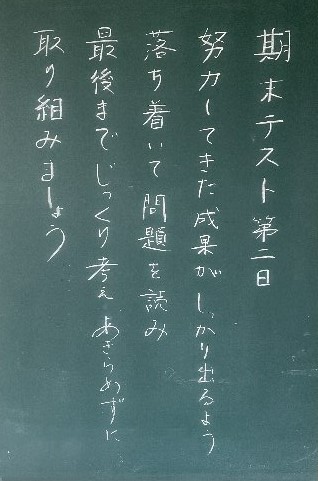 期末テスト第二日
努力してきた成果がしっかり出るよう
落ち着いて問題を読み
最後までじっくり考え、あきらめずに、
取り組みましょう